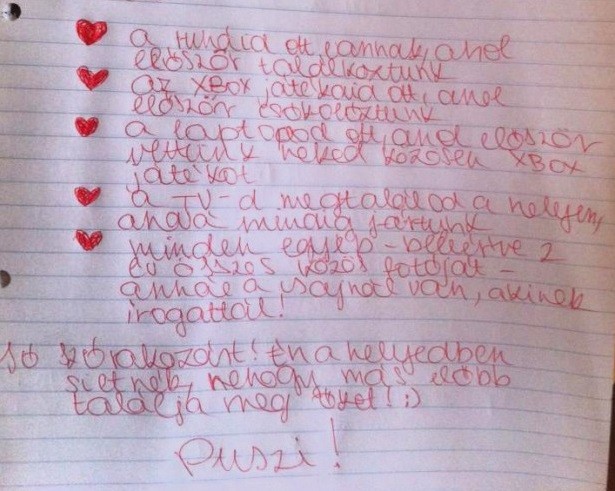 a ruháid ott vannak, ahol
először találkoztunk
az XBox játékaid ott, ahol
először csókolóztunk
a laptopod ott, ahol először
vettünk neked közösen XBox
játékot
a TV-d megtalálod a helyen,
ahová mindig jártunk
minden egyéb - beleértve 2
év összes közös fotóját -
annál a csajnál van, akinek
irogattál!
Jó szórakozást! Én a helyedben
sietnék, nehogy más előbb
találja meg őket! ;)
Puszi!